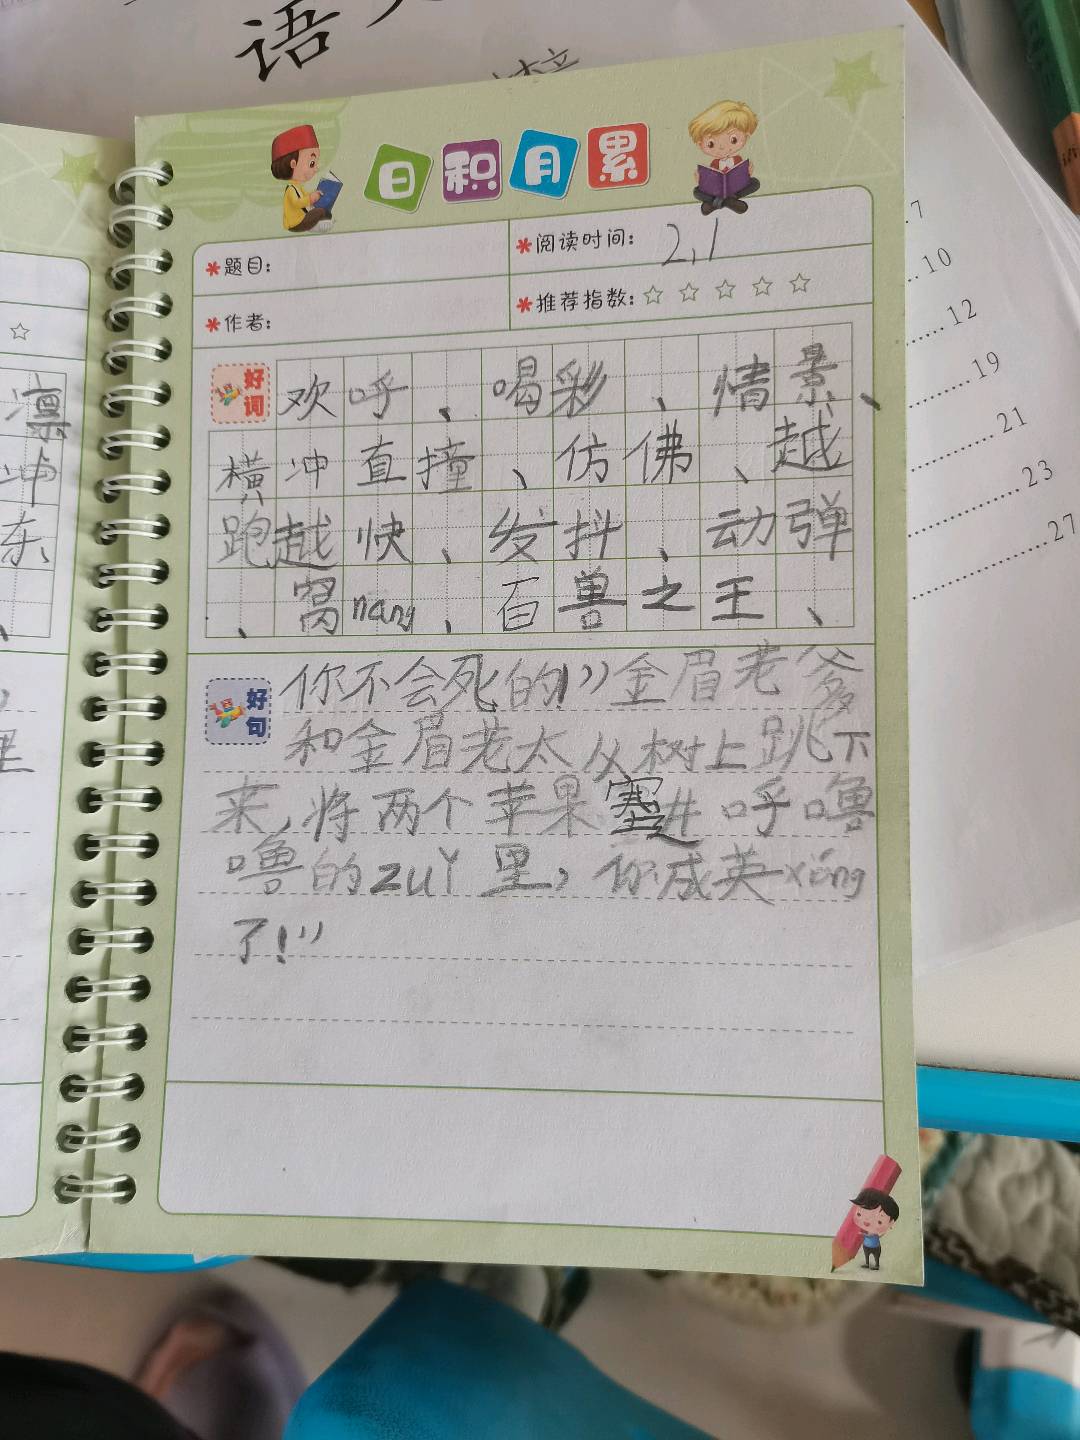 语
日积月累
*题目:
*阅读时间: 2,1
*作者:
*推荐指数: ☆ ☆ ☆ ☆ ☆
好词 欢呼、喝彩、情景、
横冲直撞、仿佛、越
跑越快、发抖、动弹
、窝nang、百兽之王、
好句 你不会死的!”金眉老爹
和金眉老太从树上跳下
来,将两个苹果塞进呼噜
噜的zuǐ里,你成英xióng
了!”
凛
冲
东
里
7
10
12
19
21
23
27